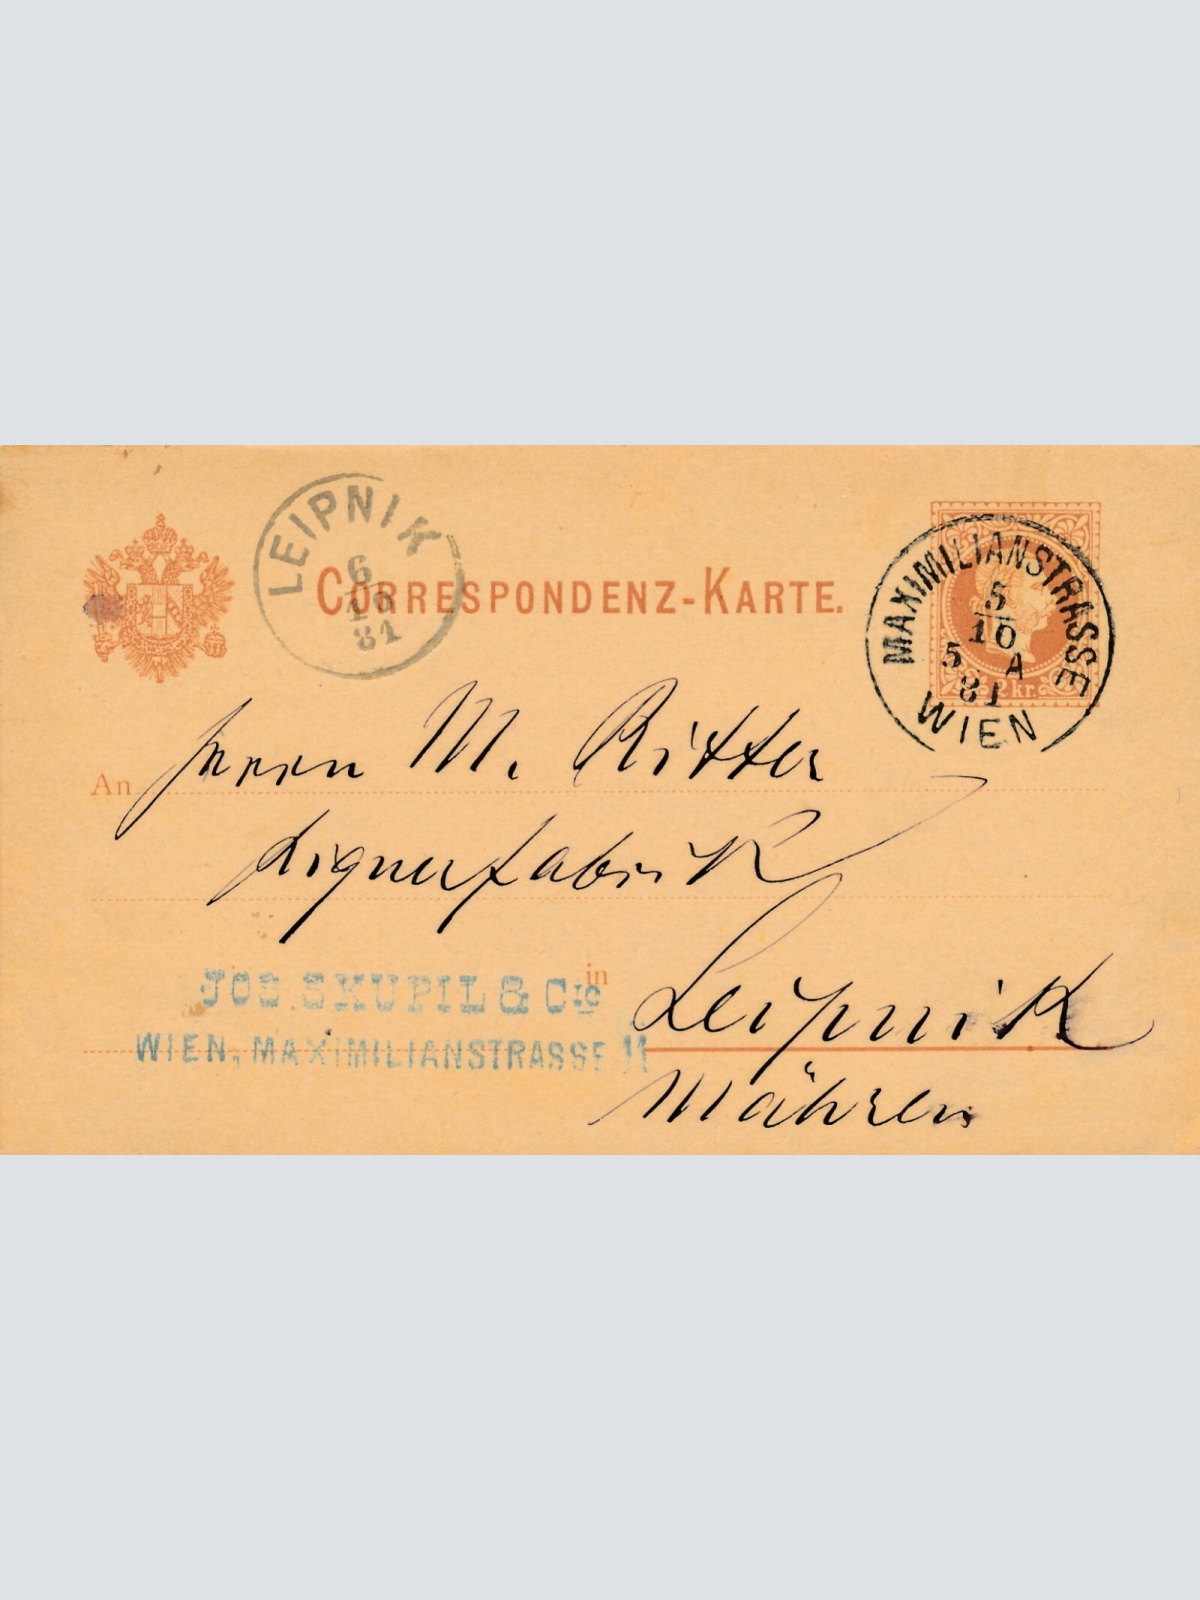 LEIPNIK
6
10
81
CORRESPONDENZ-KARTE.
MAXIMILIANSTRASSE
5
10
5 A
81
WIEN
2 kr.
An Herrn M. Ritter
Liqueurfabrik
in Leipnik
JOS. SKUPIL & Cie
WIEN, MAXIMILIANSTRASSE 11
Mähren